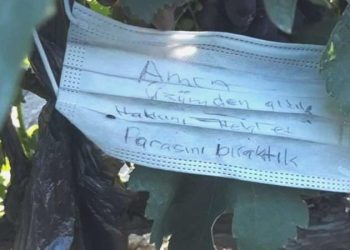 Amca
Üzümden aldık
Hakkını Helal et
Parasını bıraktık